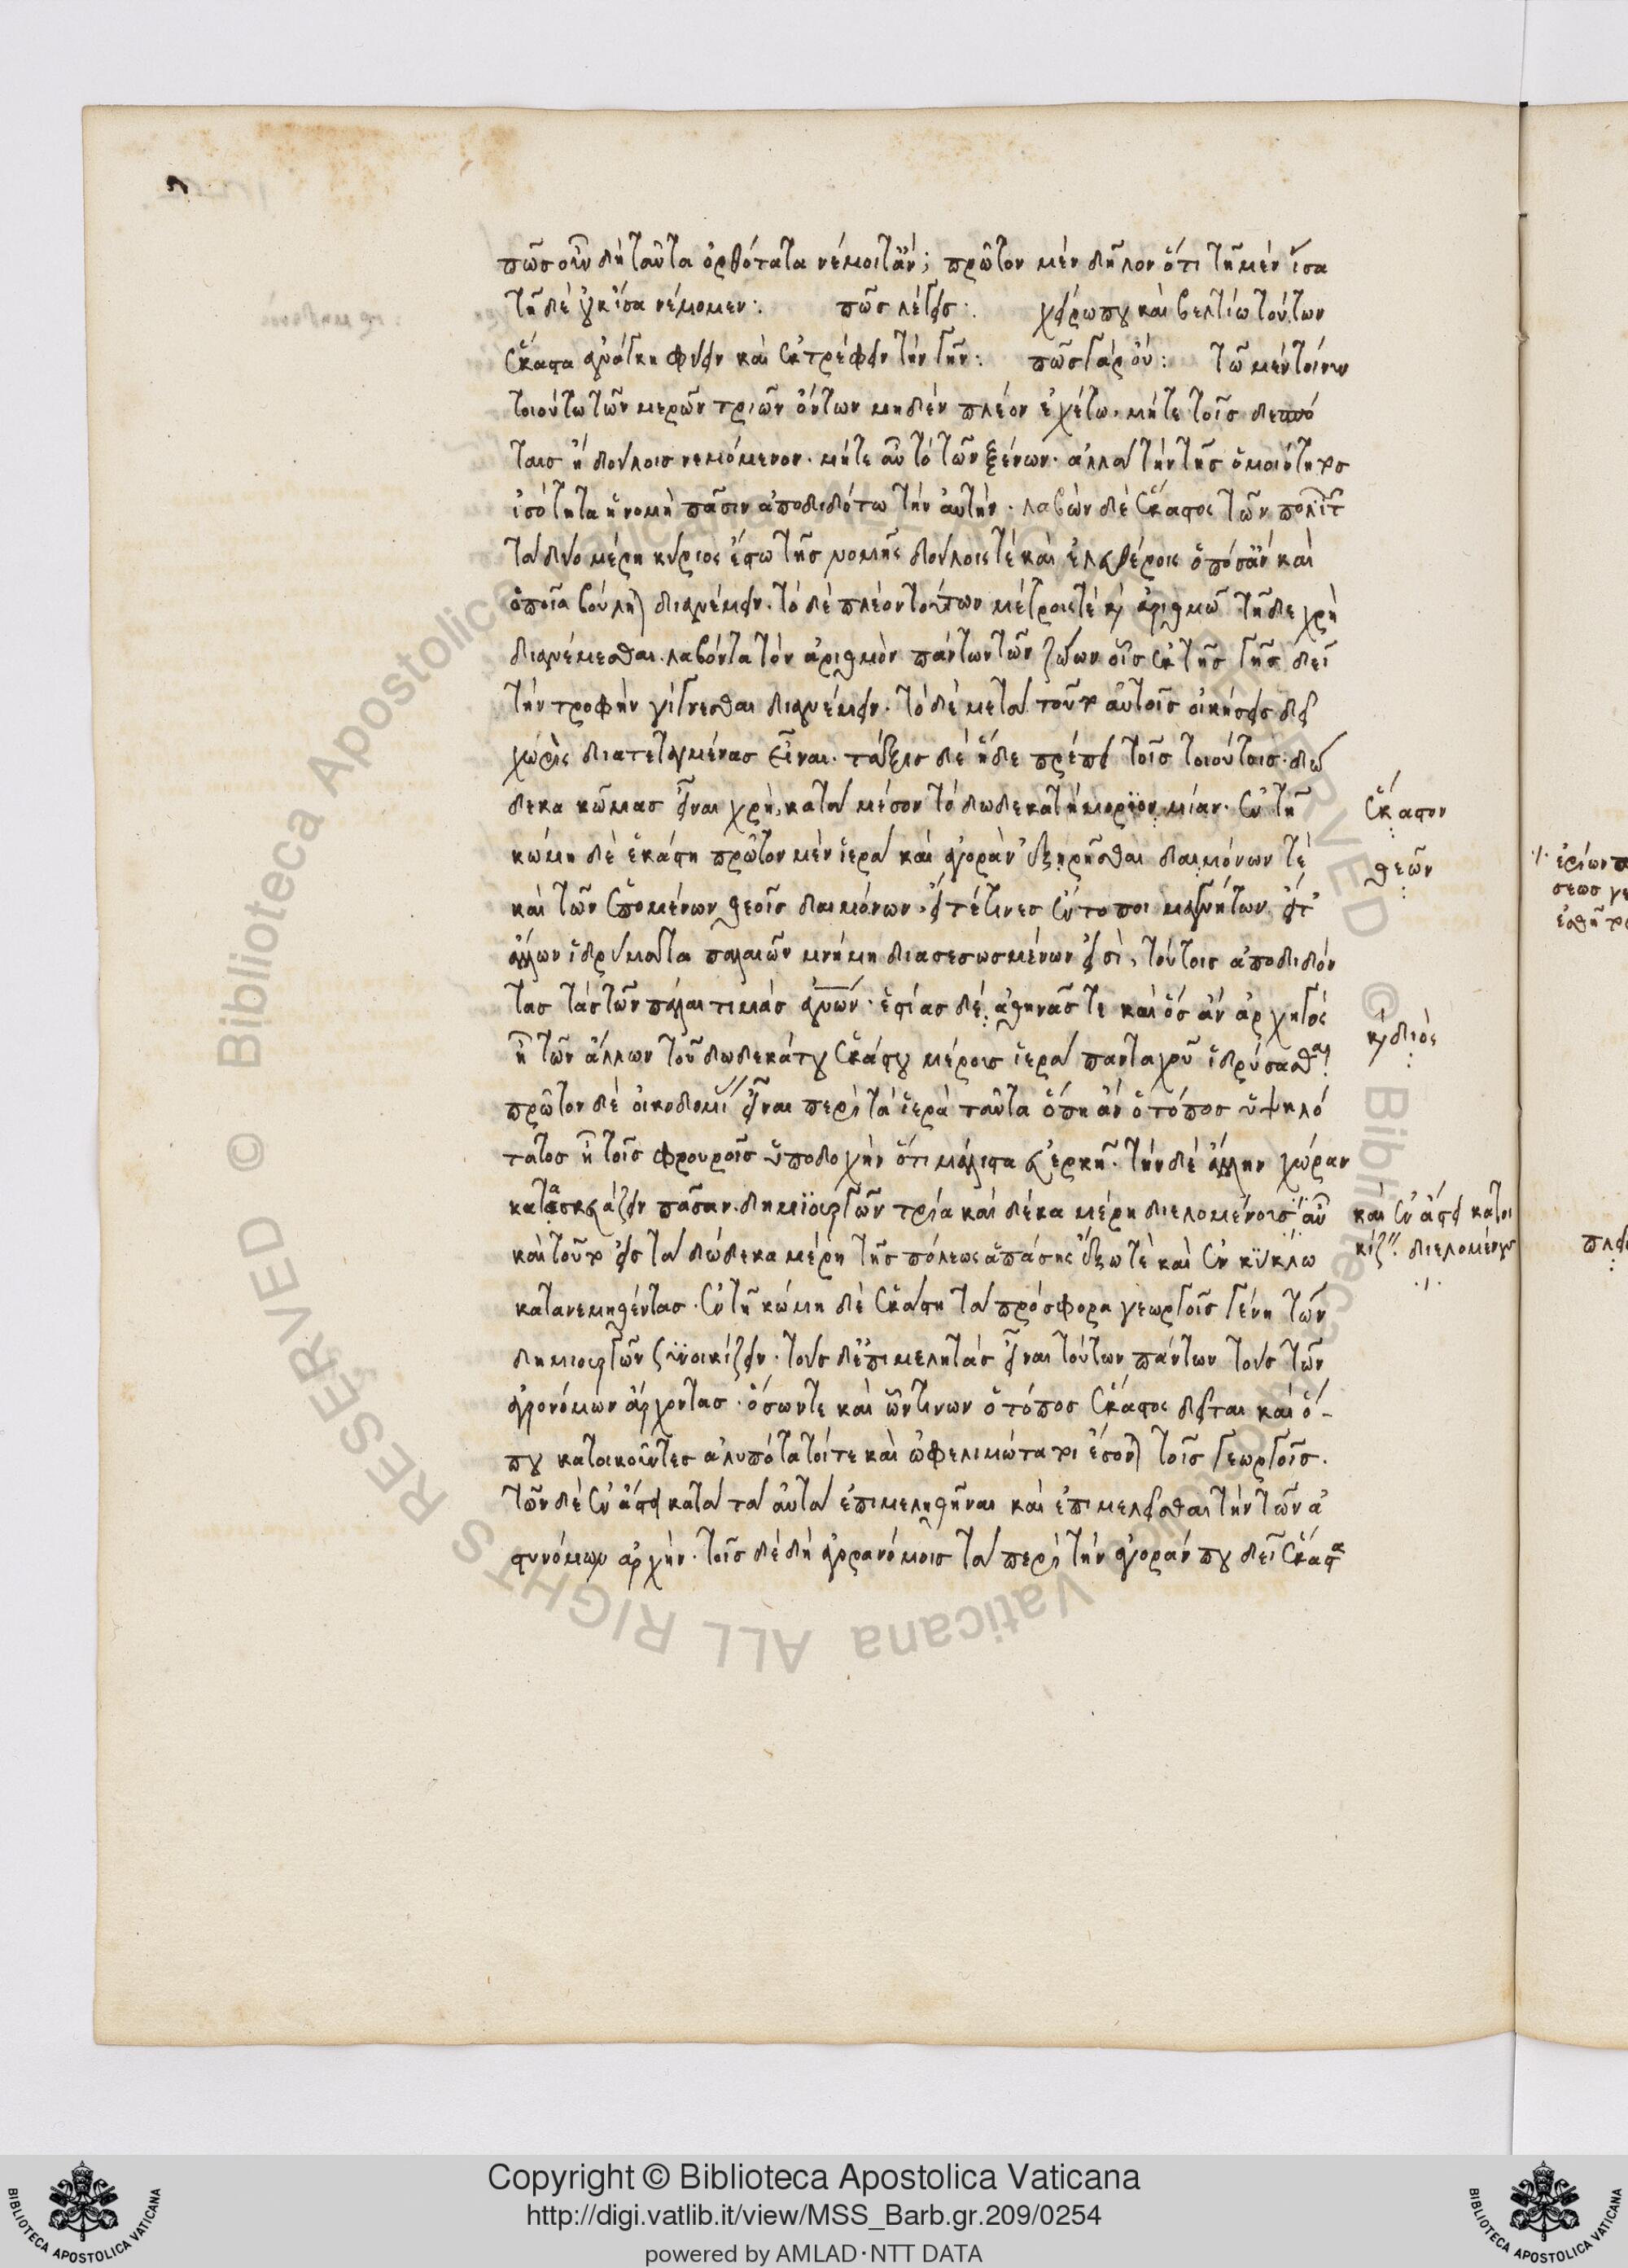 πῶς οὖν δὴ ταῦτα ὀρθότατα νέμοιτ' ἄν; πρῶτον μὲν δῆλον ὅτι τῇ μὲν ἴσα
τῇ δὲ οὐκ ἴσα νέμομεν: πῶς λέγεις: χείρω που καὶ βελτίω τούτων
ἕκαστα ἀνάγκη φύειν καὶ ἐκτρέφειν τὴν γῆν: πῶς γὰρ οὔ: τῷ μὲν τοίνυν
τοιούτω τῶν μερῶν τριῶν ὄντων μηδὲν πλέον ἐχέτω. μήτε τοῖς δεσπό
ταις ἢ δούλοις νεμόμενον. μήτε αὖ τὸ τῶν ξένων. ἀλλὰ τὴν τῆς ὁμοιότητος
ἰσότητα ἡ νομὴ πᾶσιν ἀποδιδότω τὴν αὐτήν. λαβὼν δὲ ἕκαστος τῶν πολιτῶν
τὰ δύο μέρη κύριος ἔστω τῆς νομῆς δούλοις τὲ καὶ ἐλευθέροις ὁπόσ' ἂν καὶ
ὁποῖα βούληται διανέμειν. τὸ δὲ πλέον τούτων μέτροις τὲ καὶ ἀριθμῷ τῇδε χρὴ
διανέμεσθαι. λαβόντα τὸν ἀριθμὸν πάντων τῶν ζώων οἷς ἐκ τῆς γῆς δεῖ
τὴν τροφὴν γίγνεσθαι διανέμειν. τὸ δὲ μετὰ τοῦτο αὐτοῖς οἰκήσεις δεῖ
χωρὶς διατεταγμένας εἶναι. τάξις δὲ ἥδε πρέπει τοῖς τοιούτοις. δώ
δεκα κώμας εἶναι χρὴ, κατὰ μέσον τὸ δωδεκατημόριον μίαν. ἐν τῇ
κώμῃ δὲ ἑκάστῃ πρῶτον μὲν ἱερὰ καὶ ἀγορὰν ἐξῃρῆσθαι δαιμόνων τὲ
καὶ τῶν ἑπομένων θεοῖς δαιμόνων. εἴτέ τινες ἔντοποι μαγνήτων εἴτ'
ἄλλων ἱδρύματα παλαιῶν μνήμῃ διασεσωσμένων εἰσὶ, τούτοις ἀποδιδόν
τας τὰς τῶν πάλαι τιμὰς ἀνθρώπων. ἑστίας δὲ ἀθηνᾶς τε καὶ ὃς ἂν ἀρχηγὸς
ἦ τῶν ἄλλων τοῦ δωδεκάτου ἑκάστου μέρους ἱερὰ πανταχοῦ ἱδρύσασθαι
πρῶτον δὲ οἰκοδομίας εἶναι περὶ τὰ ἱερὰ ταῦτα ὅπῃ ἂν ὁ τόπος ὑψηλό
τατος ἦ τοῖς φρουροῖς ὑποδοχὴν ὅτι μάλιστα εὐερκῆ. τὴν δὲ ἄλλην χώραν
κατασκευάζειν πᾶσαν. δημιουργῶν τρία καὶ δέκα μέρη διελομένοις αὖ
καὶ τοῦτο εἰς τὰ δώδεκα μέρη τῆς πόλεως ἁπάσης ἔξω τὲ καὶ ἐν κύκλω
κατανεμηθέντας. ἐν τῇ κώμῃ δὲ ἑκάστῃ τὰ πρόσφορα γεωργοῖς γένη τῶν
δημιουργῶν συνοικίζειν. τοὺς δ' ἐπιμελητὰς εἶναι τούτων πάντων τοὺς τῶν
ἀγρονόμων ἄρχοντας. ὅσων τε καὶ ὧντινων ὁ τόπος ἕκαστος δεῖται καὶ ὅ-
που κατοικοῦντες ἀλυπότατοί τε καὶ ὠφελιμώτατοι ἔσονται τοῖς γεωργοῖς.
τῶν δὲ ἐν ἄστει κατὰ τὰ αὐτὰ ἐπιμεληθῆναι καὶ ἐπιμελεῖσθαι τὴν τῶν ἀ
στυνόμων ἀρχήν. τοῖς δὲ δὴ ἀγορανόμοις τὰ περὶ τὴν ἀγοράν που δεῖ ἕκαστα
ἕκαστον
θεῶν
καὶ διὸς
καὶ ἐν ἄστει κατοι
κίζειν διελομένους
Copyright © Biblioteca Apostolica Vaticana
http://digi.vatlib.it/view/MSS_Barb.gr.209/0254
powered by AMLAD·NTT DATA
BIBLIOTECA APOSTOLICA VATICANA
BIBLIOTECA APOSTOLICA VATICANA
© Biblioteca Apostolica Vaticana ALL RIGHTS RESERVED